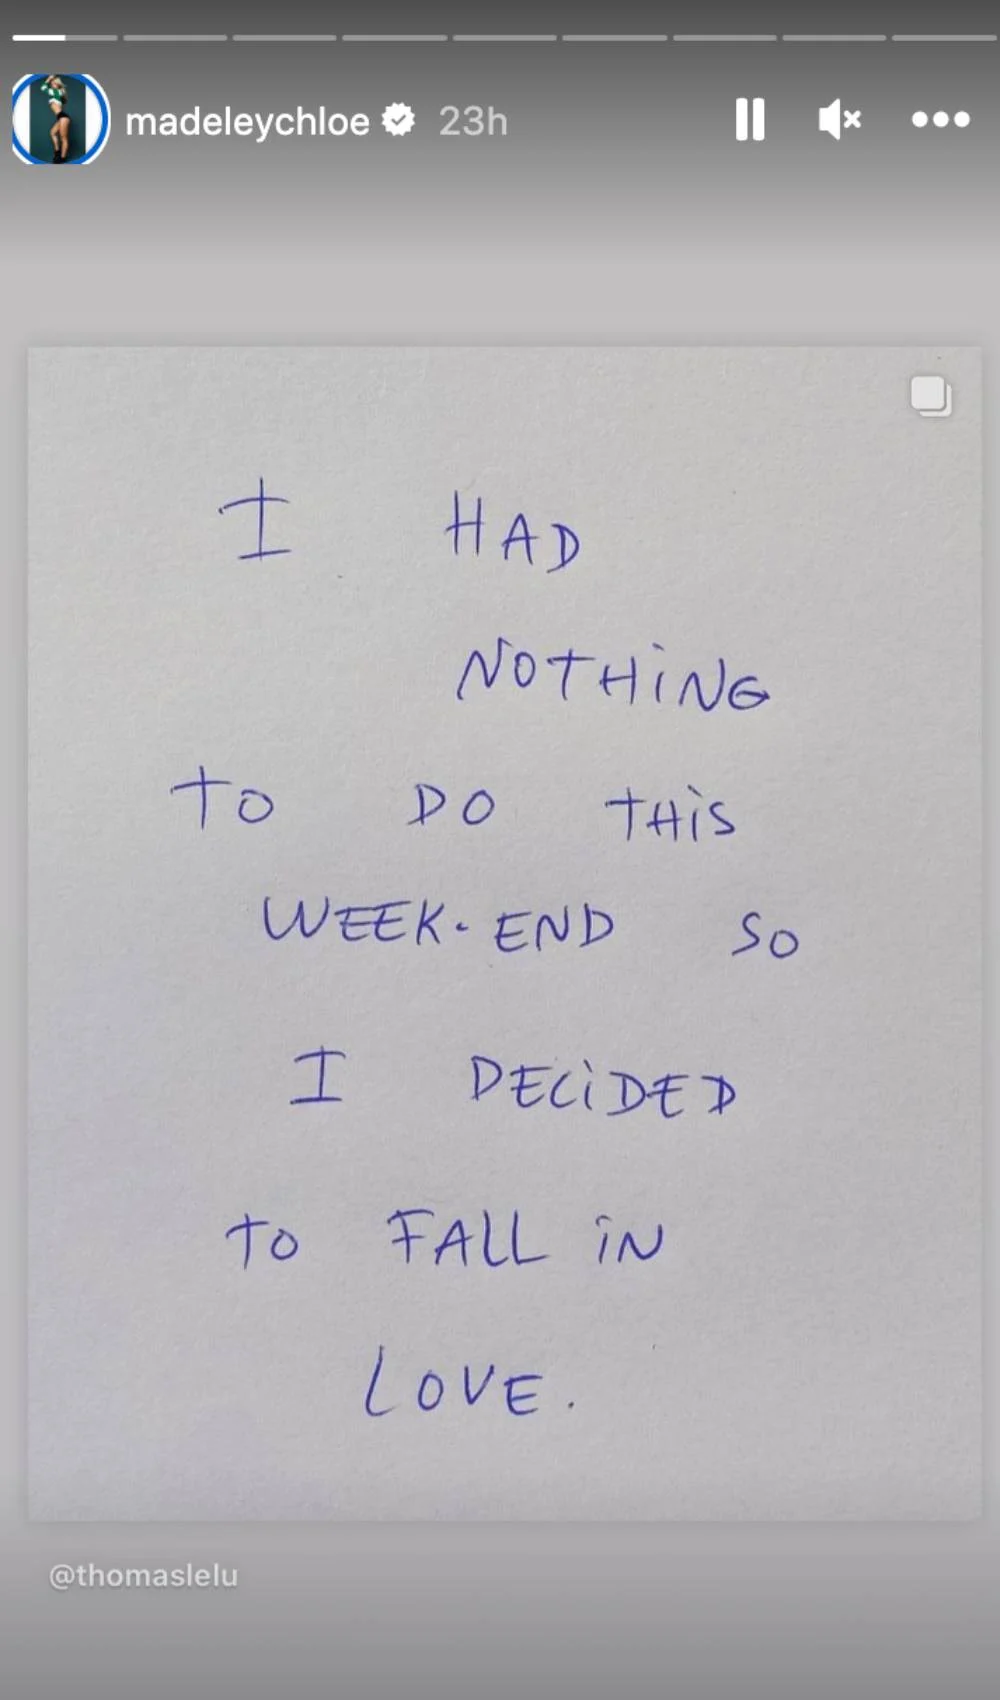 madeleychloe 23h
I HAD
NOTHiNG
TO DO THiS
WEEK-END SO
I DECiDED
TO FALL iN
LOVE.
@thomaslelu